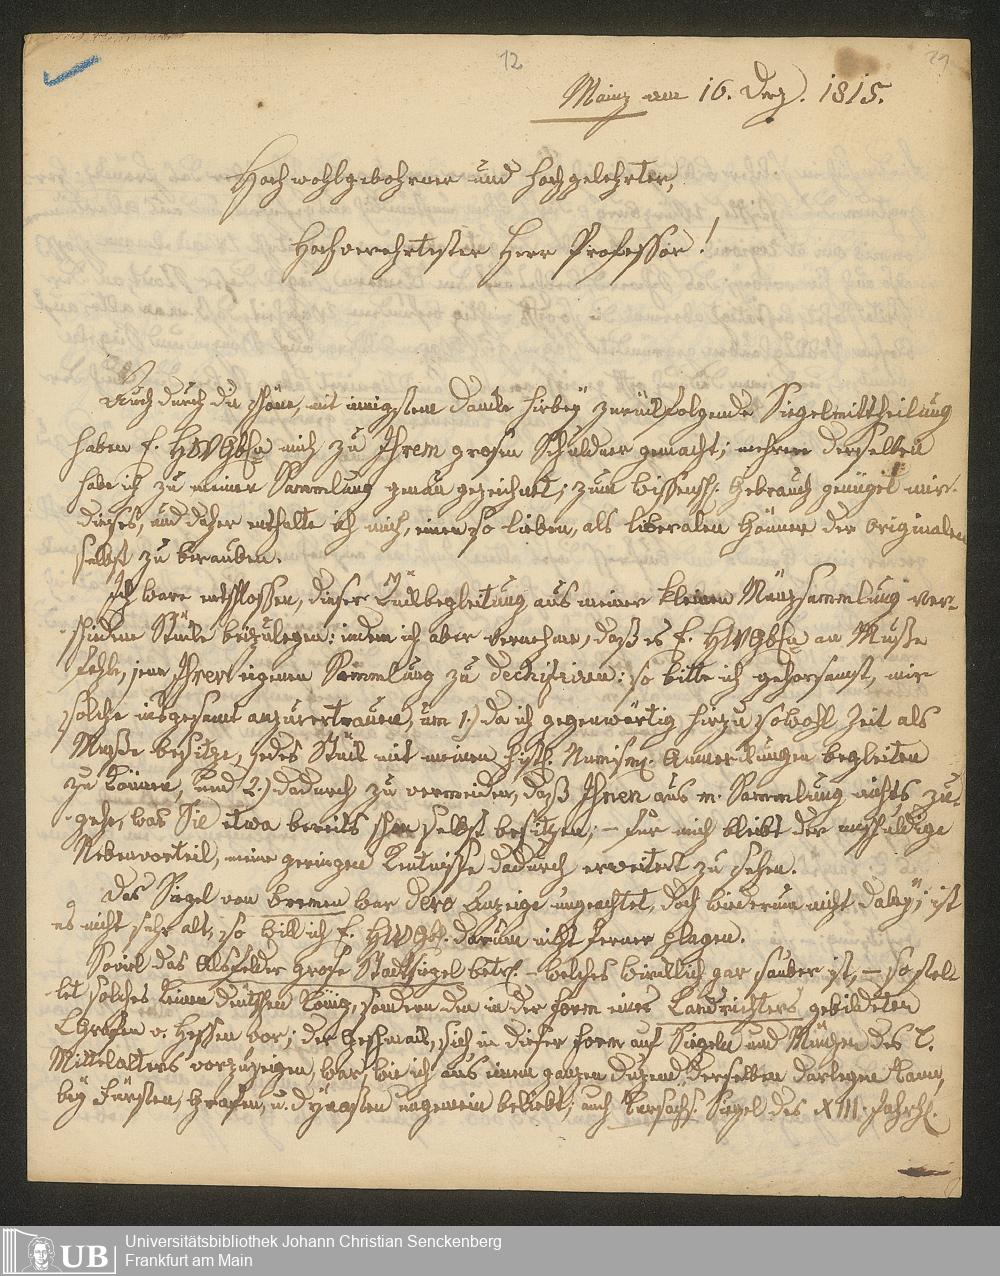 12
29
Mainz am 16. Dez. 1815.
Hochwohlgebohrner und hochgelehrter,
Hochverehrtester Herr Professor!
Auch durch die schöne, mit innigstem Danke hirbey zurückfolgende Siegelmittheilung
haben E. HWGb mich zu Ihrem grosen Schuldner gemacht; mehrere derselben
habe ich zu meiner Sammlung genau gezeichnet; zum wissensch. Gebrauch genüget mir
dieses, und daher enthalte ich mich, einen so lieben, als liberalen Gönner der Originalen
selbst zu berauben.
Ich ware entschlossen, dieser Rückbegleitung aus meiner kleinen Münzsammlung ver-
schiedene Stücke beizulegen: indem ich aber vernehme, daß es E. HWGb an Muße
fehle, jene Ihrer eigenen Sammlung zu dechifriren: so bitte ich gehorsamst, mir
solche insgesamt anzuvertrauen, um 1.) da ich gegenwärtig hirzu sowohl Zeit als
Muße besitze, jedes Stück mit meinen hist. Numism. Anmerkungen begleiten
zu können, und 2.) dadurch zu vermeiden, daß Ihnen aus m. Sammlung nichts zu-
gehe, was Sie etwa bereits schon selbst besitzen; – für mich bleibt der unschuldige
Nebenvorteil, meine geringen Kentnisse dadurch erweitert zu sehen.
Das Siegel von Bremen war dero Anzeige ungeachtet, doch wiederum nicht dabey; ist
es nicht sehr alt, so will ich E. HWGb. darum nicht ferner plagen.
Soviel das Alsfelder grose Stadtsiegel betr. – welches wirklich gar sauber ist, – so stel-
let solches keinen deutschen König, sondern den in der Form eines Landrichters gebildeten
LGrafen v. Hessen vor; der Geschmack, sich in dieser Form auf Siegeln und Münzen des
Mittelalters vorzuzeigen, war, wie ich aus einem ganzen Duzend derselben darlegen kann,
bey Fürsten, Grafen, u. Dynasten ungemein beliebt; auch Kursächs. Siegel des XIII. Jahrh.
UB
Universitätsbibliothek Johann Christian Senckenberg
Frankfurt am Main